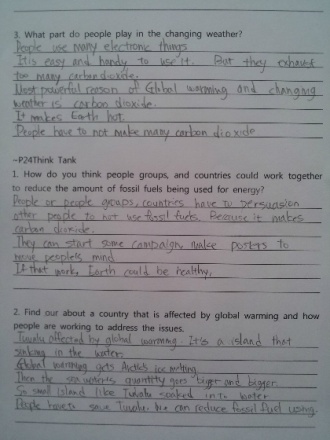 3. What part do people play in the changing weather?
People use many electronic things
It is easy and handy to use it. But they exhaust
too many carbondioxide.
Most powerful reason of Global warming and changing
weather is carbon dioxide.
It makes Earth hot.
People have to not make many carbon dioxide
~P24Think Tank
1. How do you think people groups, and countries could work together
to reduce the amount of fossil fuels being used for energy?
People or people groups, countries have to persuasion
other people to not use fossil fuels. Because it makes
carbon dioxide.
They can start some campaign, make posters to
people's mind
If that work, Earth could be healthy.
2. Find our about a country that is affected by global warming and how
people are working to address the issues.
Tuvalu affected by global warming. It's a island that
sinking in the water.
Global warming gets Arctic's ice melting
Then the sea water's quantity goes biger and bigger.
So small island like Tuvalu soaked in to water
People have to save Tuvalu. We can reduce fossil fuel using.